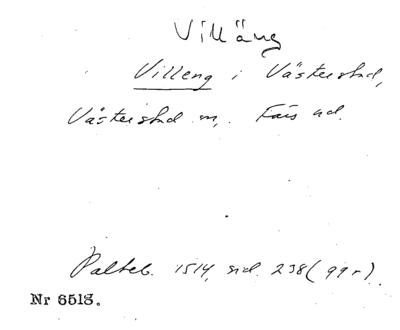 Villäng
Villeng i Västerstad,
Västerstad sn, Färs hd.
Palteb. 1514, sid. 238 (99r)
Nr 6513.